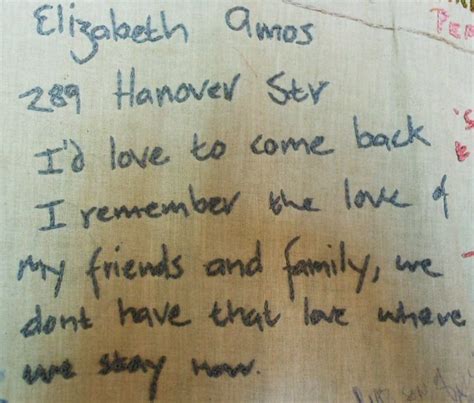 Elizabeth Amos
289 Hanover Str
I'd love to come back
I remember the love of
My friends and family, we
dont have that love where
we stay now.